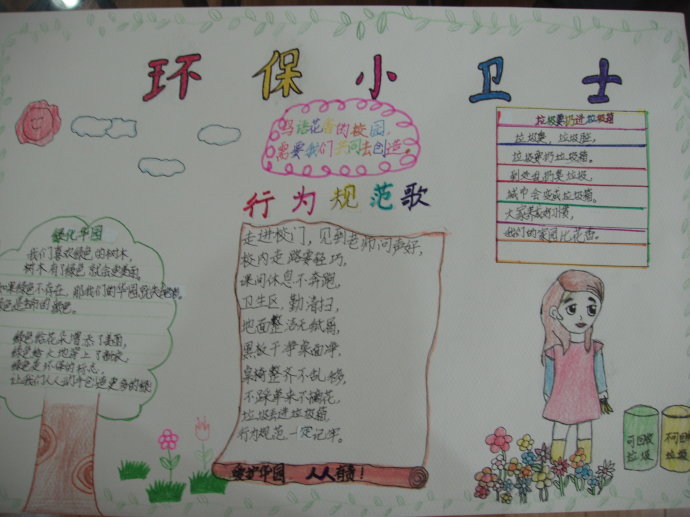 环保小卫士
鸟语花香的校园，
需要我们共同去创造。
垃圾要扔进垃圾箱
垃圾臭，垃圾脏，
垃圾要扔垃圾箱。
到处乱扔臭垃圾，
城市会变成垃圾箱。
大家养成好习惯，
我们的家园比花香。
行为规范歌
走进校门，见到老师问声好，
校内走路要轻巧，
课间休息不奔跑，
卫生区，勤清扫，
地面整洁无纸屑，
黑板干净桌面净，
桌椅整齐不乱移，
不踩草来不摘花，
垃圾丢进垃圾箱
行为规范一定记牢。
爱护校园 人人有责！
绿化校园
我们喜欢绿色的树木，
树木有了绿色就会更美丽，
如果绿色不存在，那我们的校园就失去
绿色是树的颜色。
绿色给花朵增添了美丽，
绿色给大地穿上了新衣，
绿色是环保的标志，
让我们人人动手创造更多的绿
可回收
垃圾
不可回收
垃圾